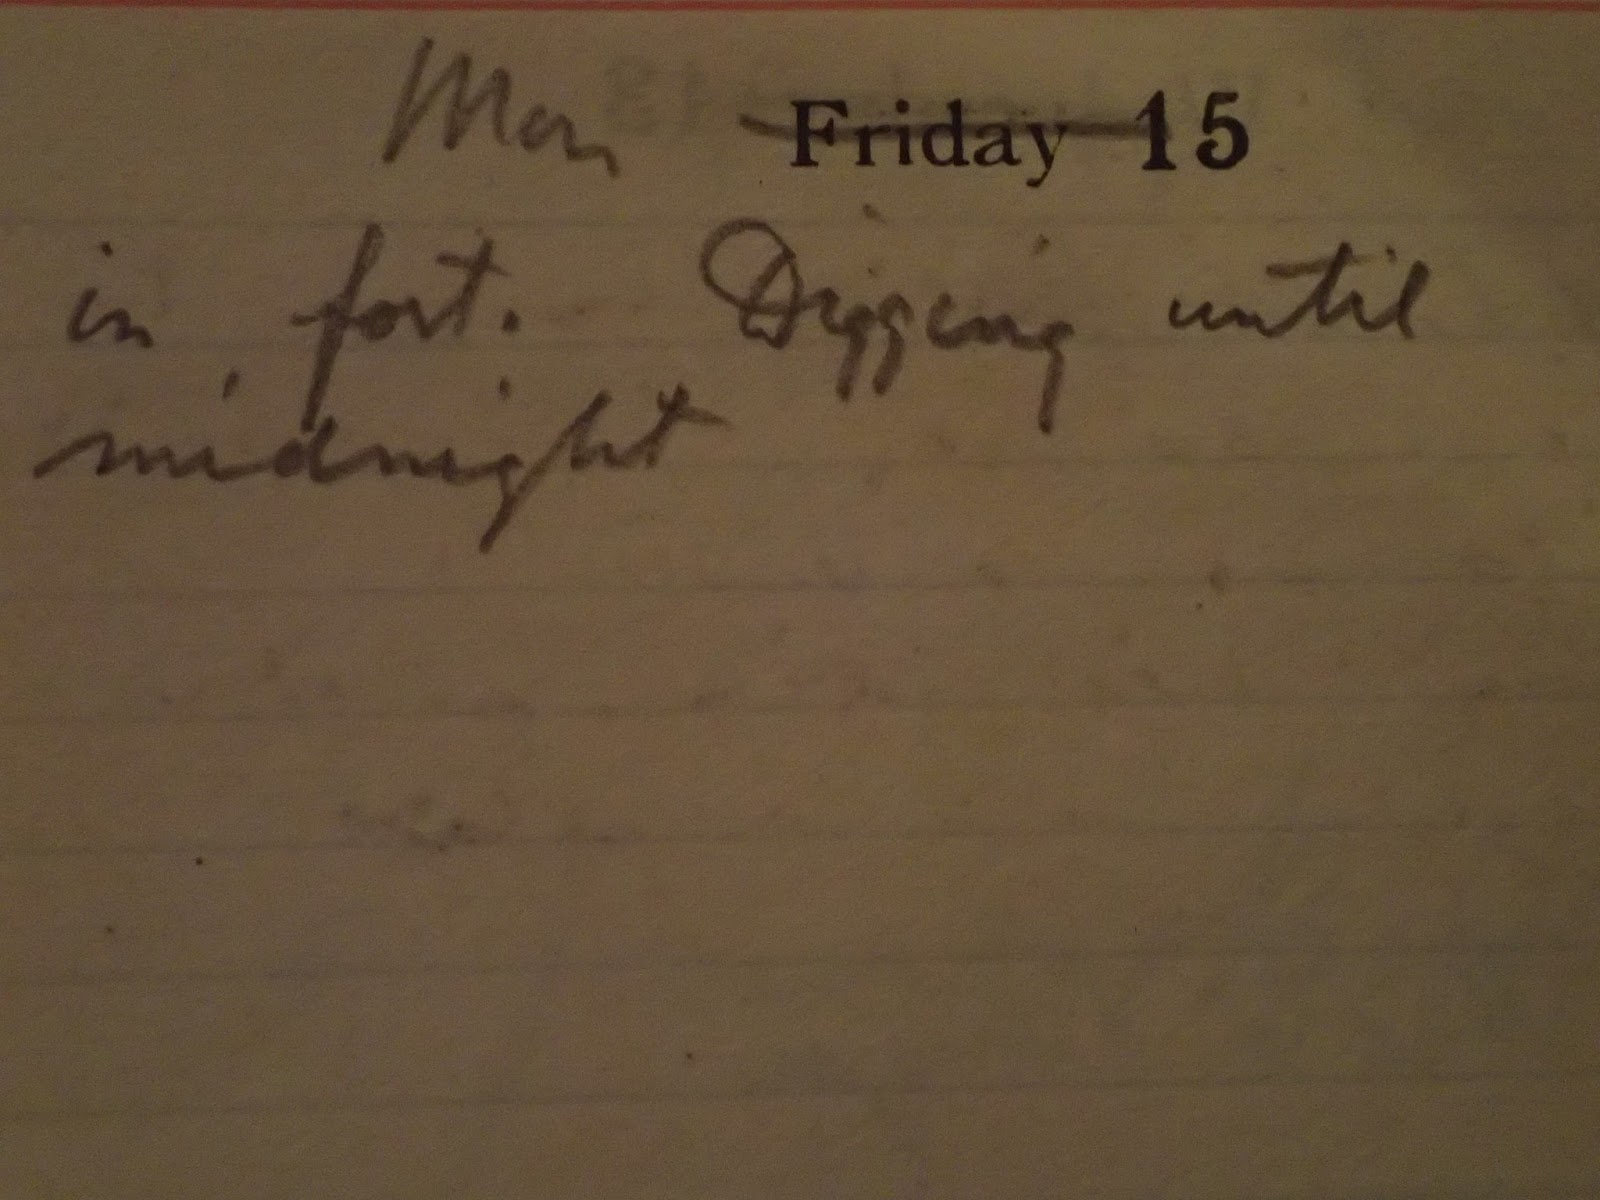 Mon Friday 15
in fort. Digging until
midnight